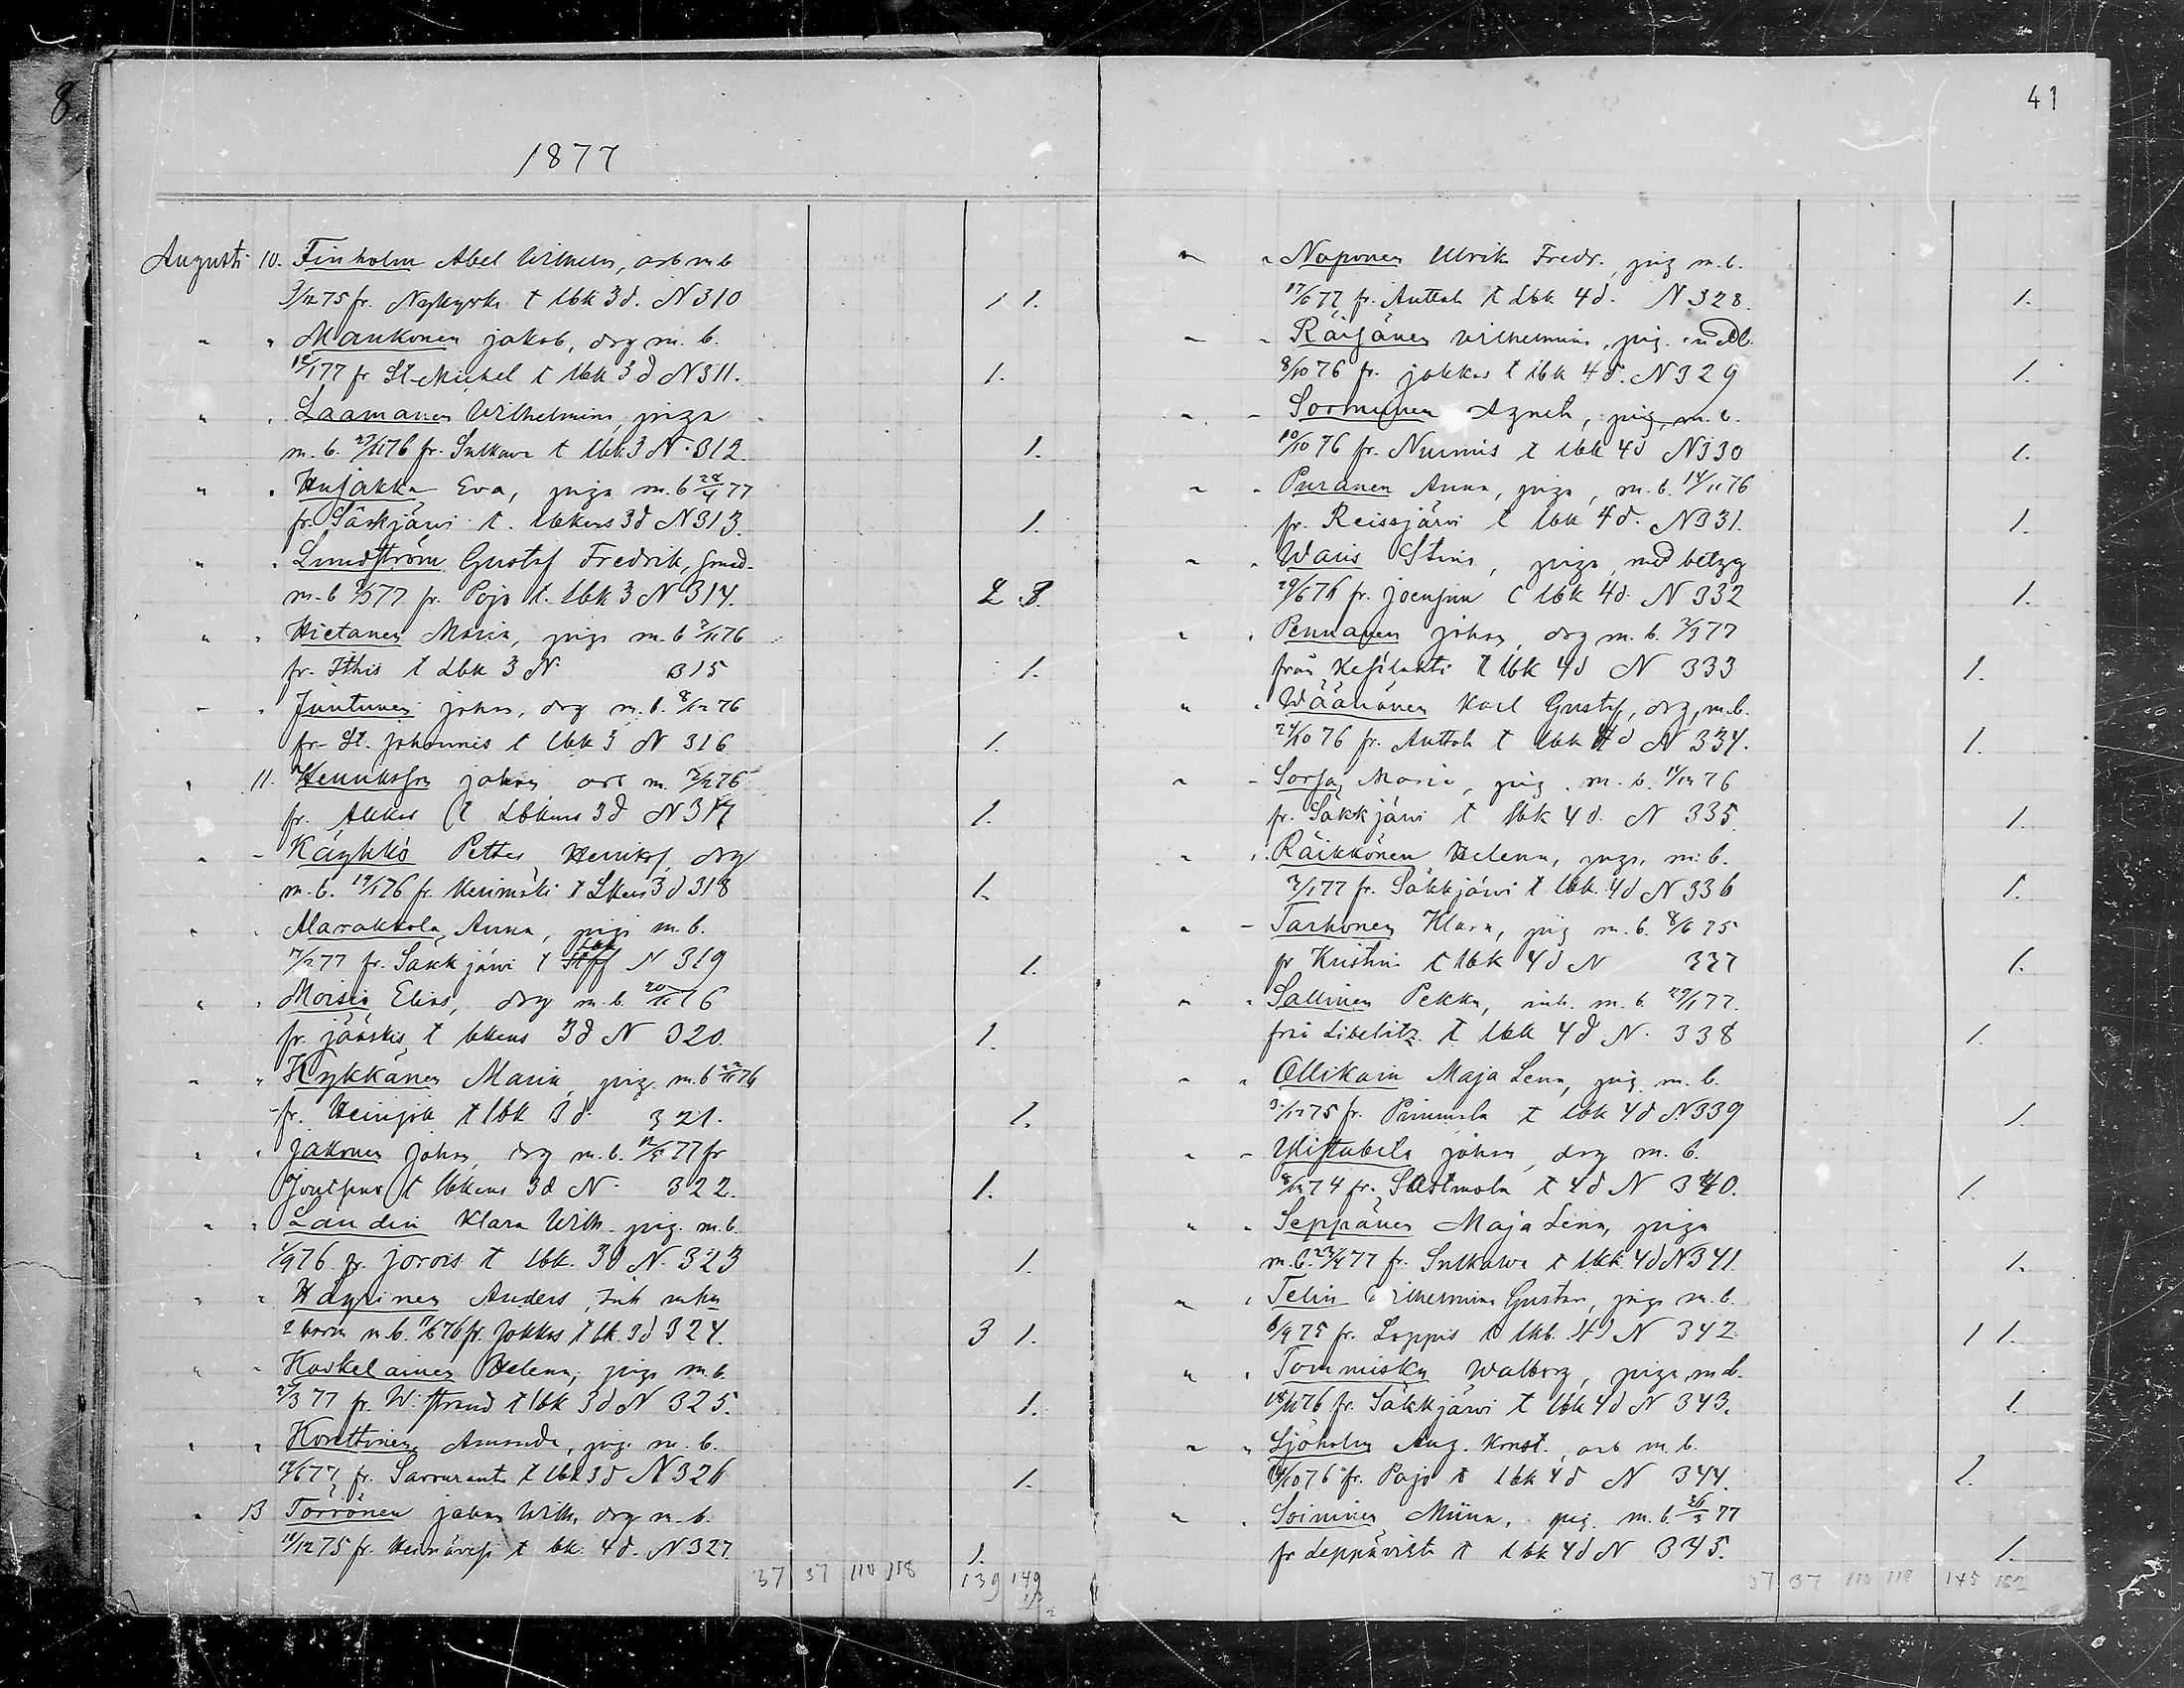 8.
1877
Augusti 10. Finholm Abel Wilhelm, arb m b
3/12 75 fr. Nykyrka t lbk 3d. N 310 1 1.
" " Maukonen Jakob, drg m. b.
12/1 77 fr St Michel t lbk 3d N 311. 1.
" " Laamanen Wilhelmina, piga
m. b. 27/11 76 fr. Sulkava t lbk 3 N. 312. 1.
" " Hujakka Eva, piga m. b 28/4 77
fr. Säkkjärvi t. lbkens 3d N 313. 1.
" " Lundström Gustaf Fredrik, smed
m-b 77 fr. Pojo t. lbk 3 N 314. 2 3.
" " Hietanen Maria, piga m. b 76
fr. Ithis t Lbk 3 N 315 1.
" " Juntunen Johan, drg m. b. 8/12 76
fr. St. Johannis t lbk 3 N 316 1.
" 11. Henriksson Johan arb m. 76
fr. Akkas t Lbkens 3d N 317 1.
" " Käyhkö Petter Henriks, drg
m. b. 19/1 76 fr. Kerimäki t Lkens 3d 318 1.
" " Marakkola Anna, piga m. b.
77 fr. Säkkjärvi t Lbk N 319 1.
" " Moisio Elias, drg m. b. 20/11 76
fr. Jääskis t lbkens 3d N 320. 1.
" " Kykkänen Maria, pig. m. b 76
fr. Heinjok t lbk 3d 321. 1.
" " Jakonen Johan, drg m. b. 77 fr
Joutseno t lbkens 3d N. 322. 1.
" " Landin Klara Wilh. pig. m. b.
1/9 76 fr. Jorois t lbk. 3d N. 323 1.
" " Häyrinen Anders, Inh m hu
2 barn m. b. 76 fr. Jokkas t lk. 3d 324. 3 1.
" " Koskelainen Helena, piga m. b.
77 fr. W. strand t lbk 3d N 325. 1.
" " Konttinen Amanda, pig. m. b.
77 fr. Savvuranta t lbk 3d N 326 1.
" 13 Törrönen Johan Wilh, drg m. b.
10/12 75 fr. Heinävesi t bk. 4d. N 327. 1.
37 37 110 118 139 149
41
" " Naponen Ulrik Fredr. pig m. b.
17/6 77 fr. Anttola t Lbk 4d. N 328. 1.
" " Räisänen Wilhelmina, pig. m b.
8/10 76 fr. Jokkas t lbk 4d. N 329 1.
" " Sormunen Agneta, pig, m. b.
10/10 76 fr. Nurmis t lbk 4d N 330 1.
" " Puranen Anna, piga, m. b. 14/11 76
fr. Reissjärvi t lbk 4d. N 331. 1.
" " Waris Stina, piga, med betyg
29/6 76 fr. Joensuu t lbk 4d. N 332 1.
" " Pennanen Johan, drg m. b. 77
från Kesälahti t lbk 4d N 333 1.
" " Wäänänen Karl Gustaf, drg, m. b.
24/10 76 fr. Anttola t lbk 4d N 334. 1.
" " Sorsa, Maria, pig. m. b. 11/12 76
fr. Säkkjärvi t lbk 4d. N 335. 1.
" " Räikkönen Helena, piga, m. b.
77 fr. Säkkjärvi t lbk. 4d N 336 1.
" " Tarhonen Klara, pig m. b. 8/6 75
fr Kristina t lbk 4d N 337 1.
" " Sallinen Pekka, inh. m. b. 29/1 77.
från Libelitz. t lbk 4d N. 338 1.
" " Ollikain Maja Lena, pig. m. b.
75 fr. Pumala t lbk 4d N 339 1.
" " Ylistubila Johan, drg m. b.
74 fr. Sastmola t 4d N 340. 1.
" " Seppänen Maja Lena, piga
m. b. 23/4 77 fr. Sulkava t lbk. 4d N 341. 1.
" " Telin Wilhelmina Gustava, piga m. b.
6/9 75 fr. Loppis t lkb. 4d N 342 1 1.
" " Tommiska Walborg, piga, m. b.
76 fr. Säkkjärvi t lbk 4d N 343. 1.
" " Sjöholm Aug. Konst., arb m. b.
76 fr. Pojo t lbk 4d N 344. 2.
" " Soininen Miina, pig. m. b. 26/3 77
fr Leppävirta t lbk 4d N 345. 1.
37 37 110 118 145 162